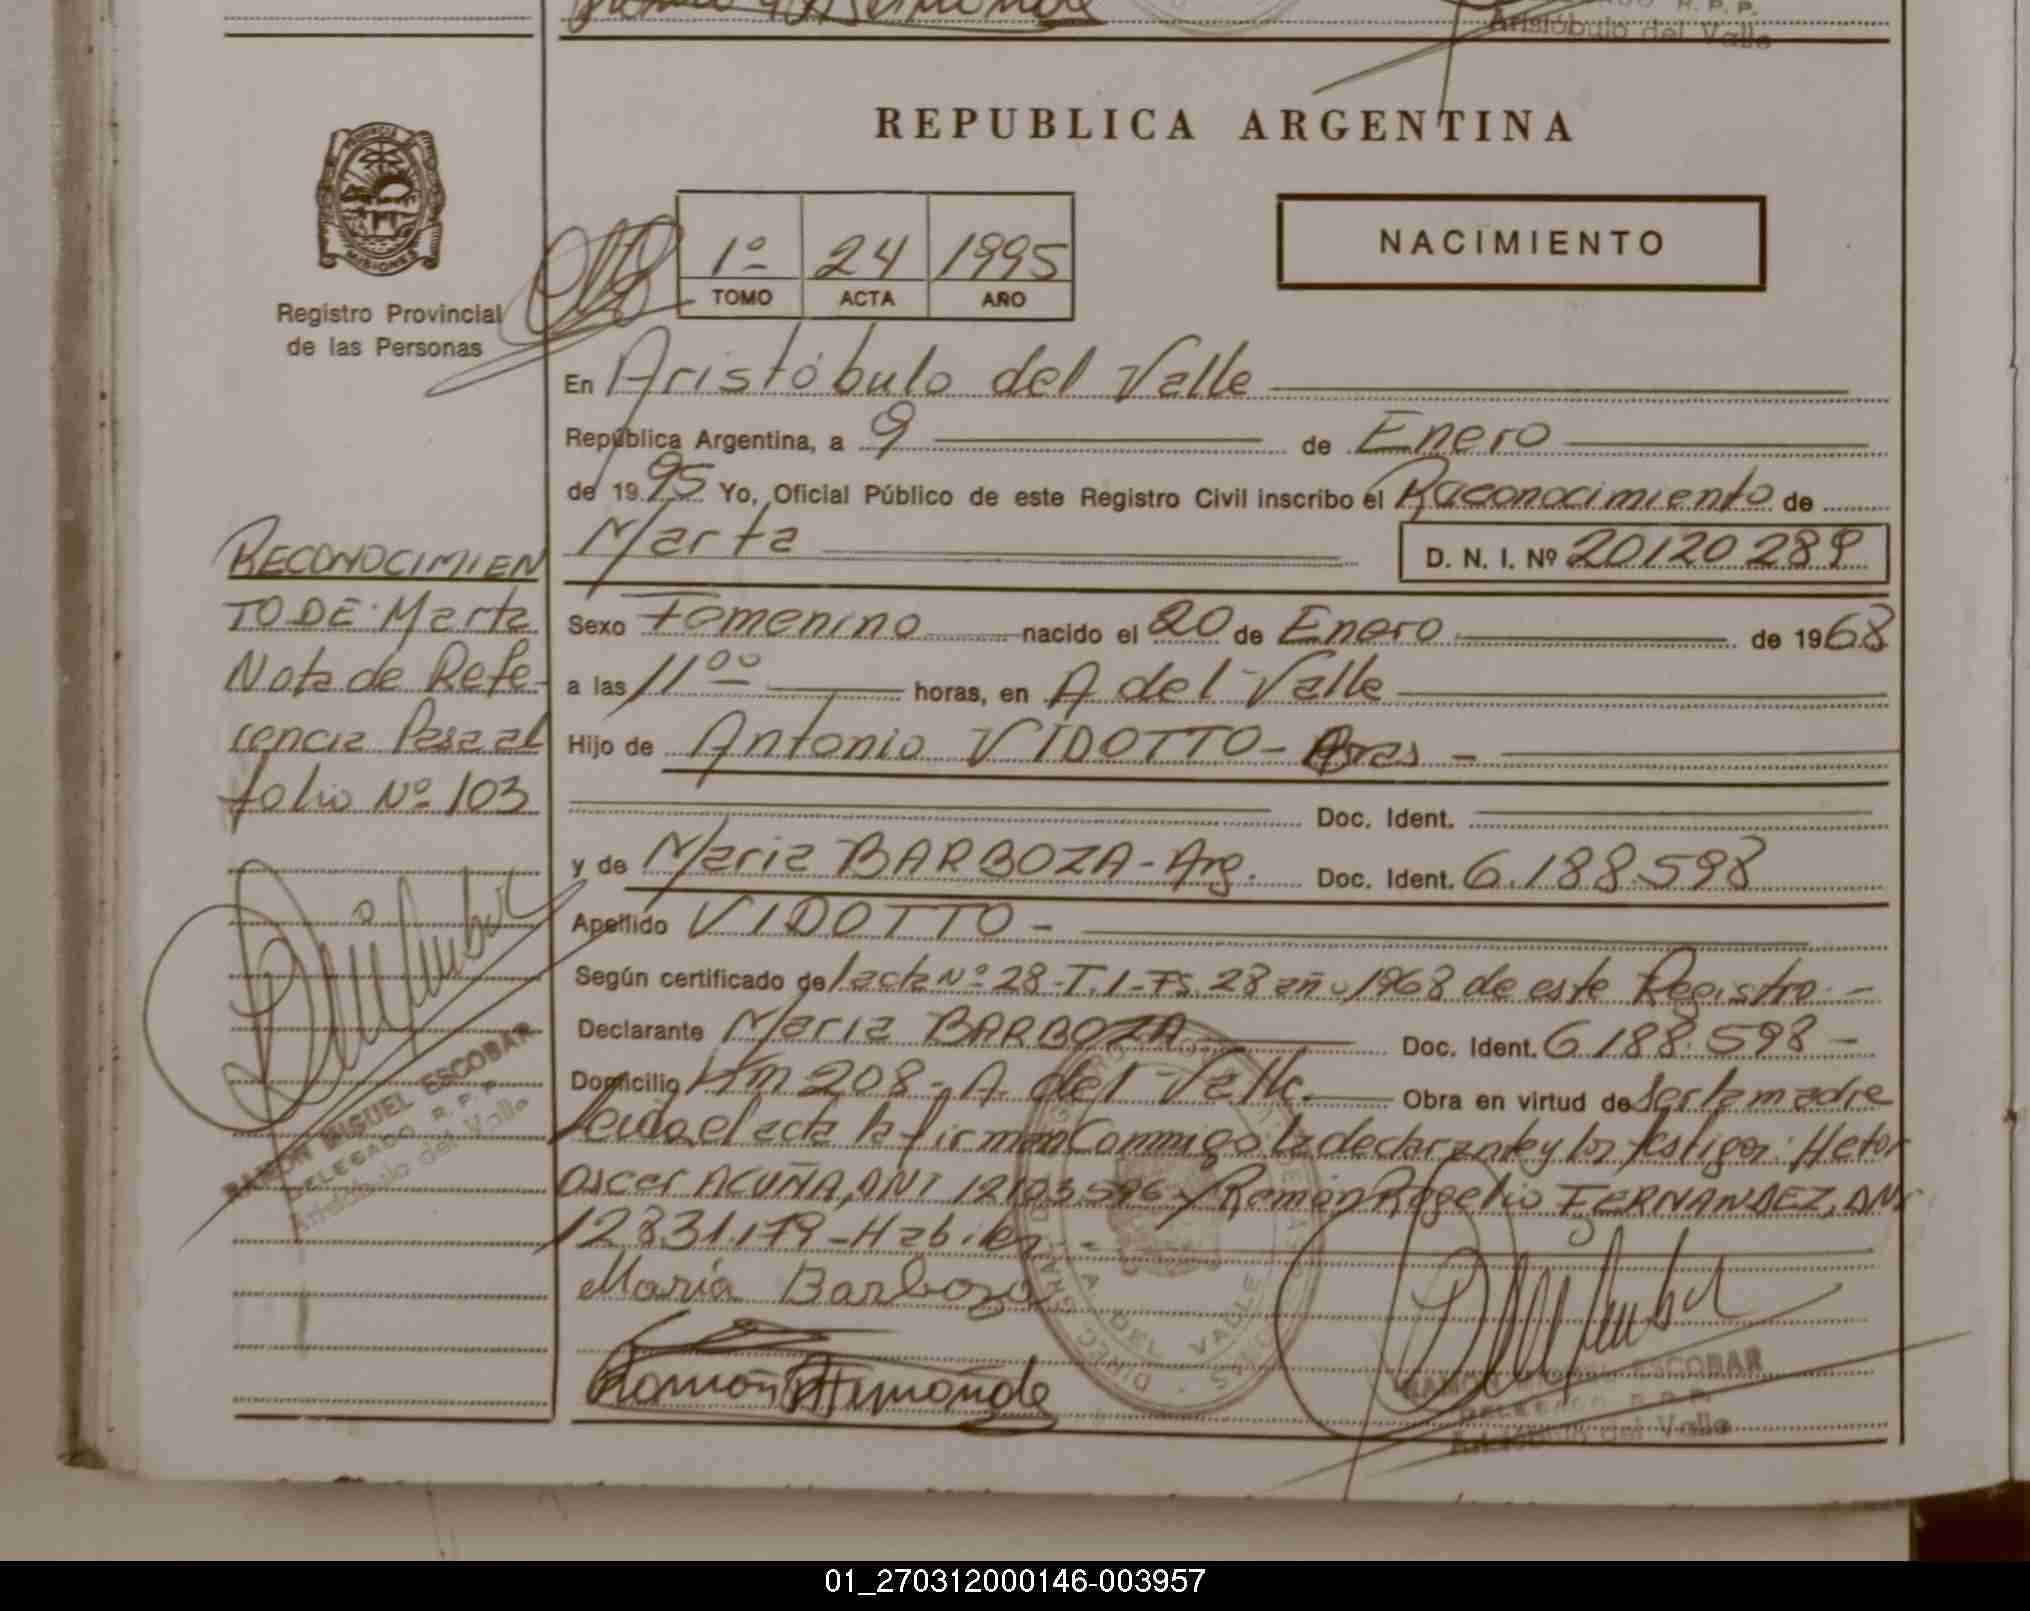 Aristóbulo del Valle
REPUBLICA ARGENTINA
PROVINCIA
MISIONES
Registro Provincial
de las Personas
1º 24 1995
TOMO ACTA AÑO
NACIMIENTO
En Aristóbulo del Valle
República Argentina, a 9 de Enero
de 1995 Yo, Oficial Público de este Registro Civil inscribo el Raconocimiento de
Marta D. N. I. Nº 20120289
Sexo Femenino nacido el 20 de Enero de 1968
a las 11⁰⁰ horas, en A del Valle
Hijo de Antonio VIDOTTO-
Doc. Ident.
y de Maria BARBOZA - Arg. Doc. Ident. 6.188.598
Apellido VIDOTTO -
Según certificado de acta Nº 28-T.1-Fs. 28 año 1968 de este Registro.-
Declarante Maria BARBOZA Doc. Ident. 6188.598-
Domicilio Km 208- A. del Valle. Obra en virtud de ser la madre
Leida el acta la firman Conmigo la declarante y los testigos: Hetor
Oscar ACUÑA, DNI 12103.596 y Ramón Rogelio FERNANDEZ, DNI
12831.179-Habiles.-
María Barboza
Ramón
RAMON MIGUEL ESCOBAR
DELEGADO R. P. P.
Aristóbulo del Valle
RECONOCIMIEN
TO DE: Marta
Nota de Refe-
rencia Pasa al
folio Nº 103
RAMON MIGUEL ESCOBAR
DELEGADO R. P. P.
Aristóbulo del Valle
A. DEL VALLE
01_270312000146-003957